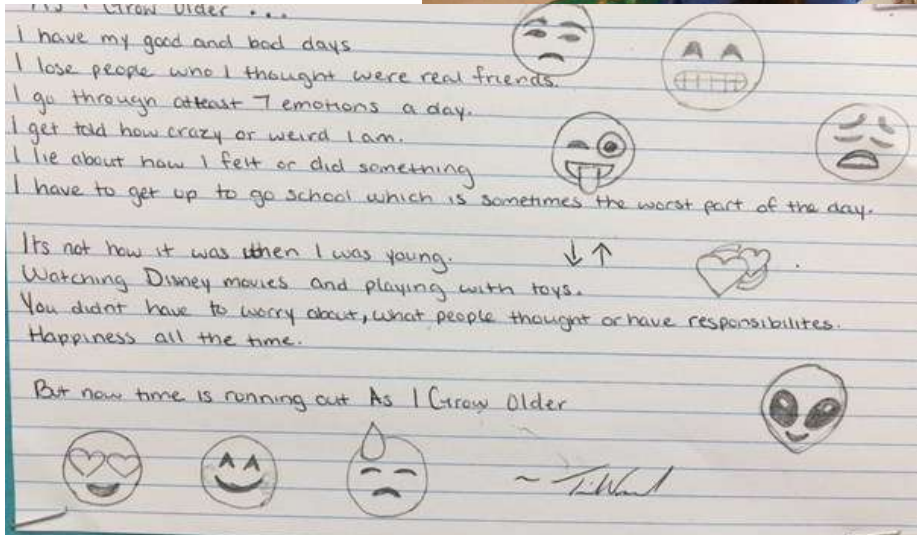 As I Grow Older ...
I have my good and bad days
I lose people who I thought were real friends.
I go through atleast 7 emotions a day.
I get told how crazy or weird I am.
I lie about how I felt or did something
I have to get up to go school which is sometimes the worst part of the day.
Its not how it was when I was young.
Watching Disney movies and playing with toys.
You didnt have to worry about, what people thought or have responsibilites.
Happiness all the time.
But now time is running out As I Grow Older